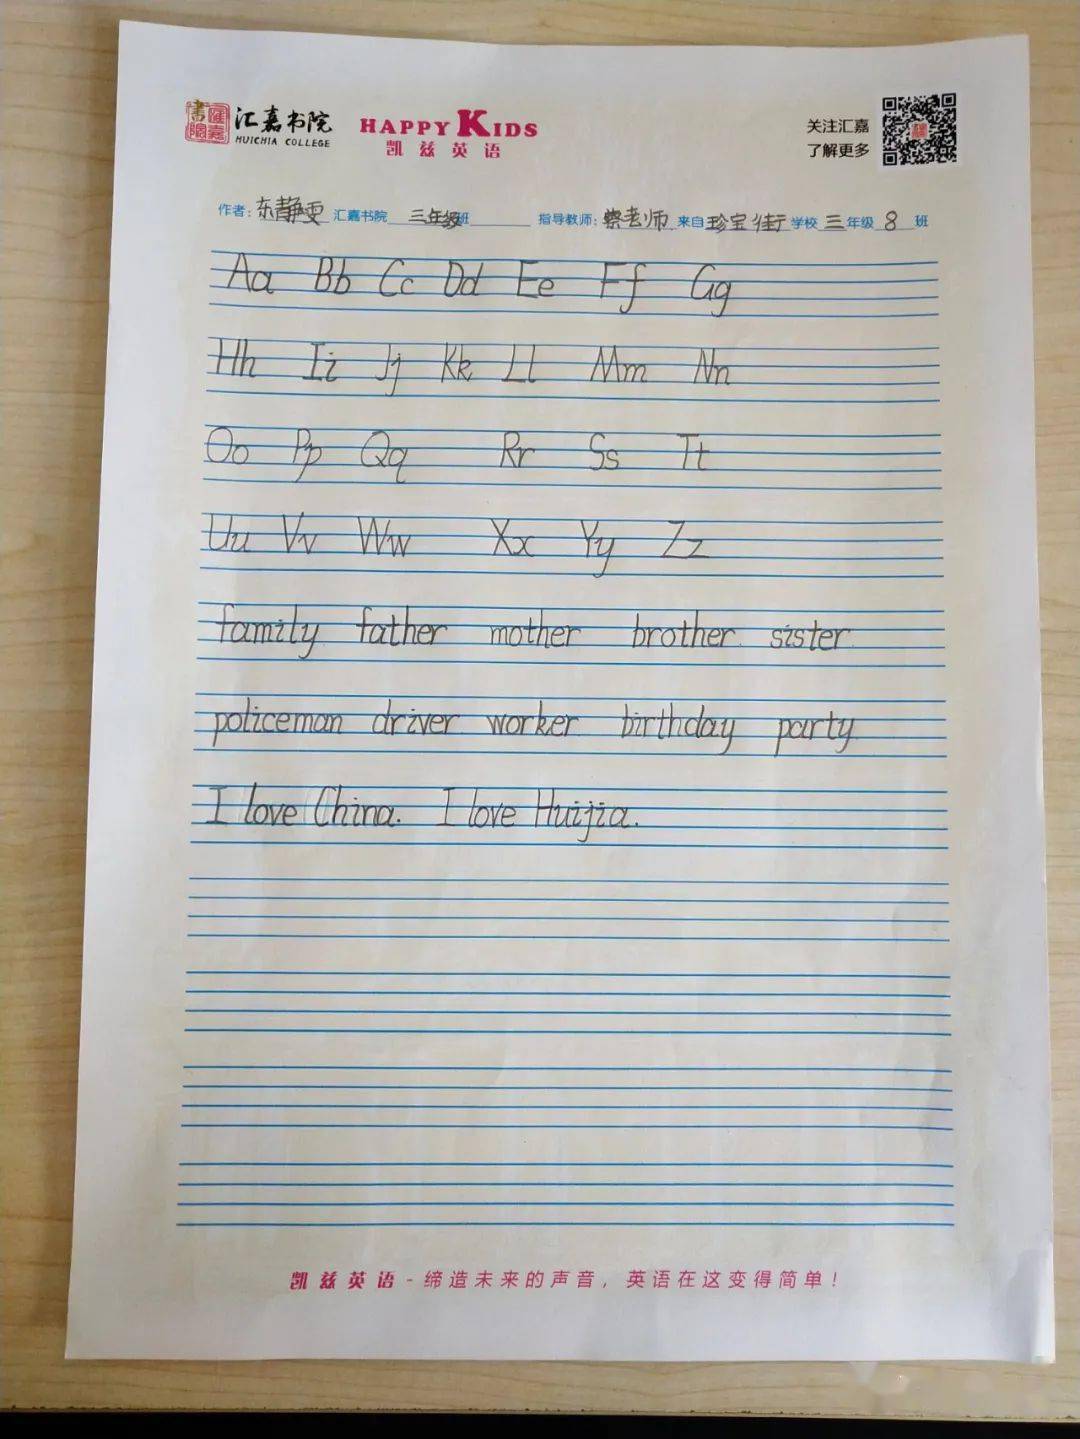 書院 匯嘉 汇嘉书院 HAPPY KIDS 关注汇嘉
HUICHIA COLLEGE 凯兹英语 了解更多
作者: 东静雯 汇嘉书院 三年级班 指导教师: 蔡老师 来自 珍宝街 学校 三 年级 8 班
Aa Bb Cc Dd Ee Ff Gg
Hh Ii Jj Kk Ll Mm Nn
Oo Pp Qq Rr Ss Tt
Uu Vv Ww Xx Yy Zz
family father mother brother sister
policeman driver worker birthday party
I love China. I love Huijia.
凯兹英语-缔造未来的声音，英语在这变得简单！